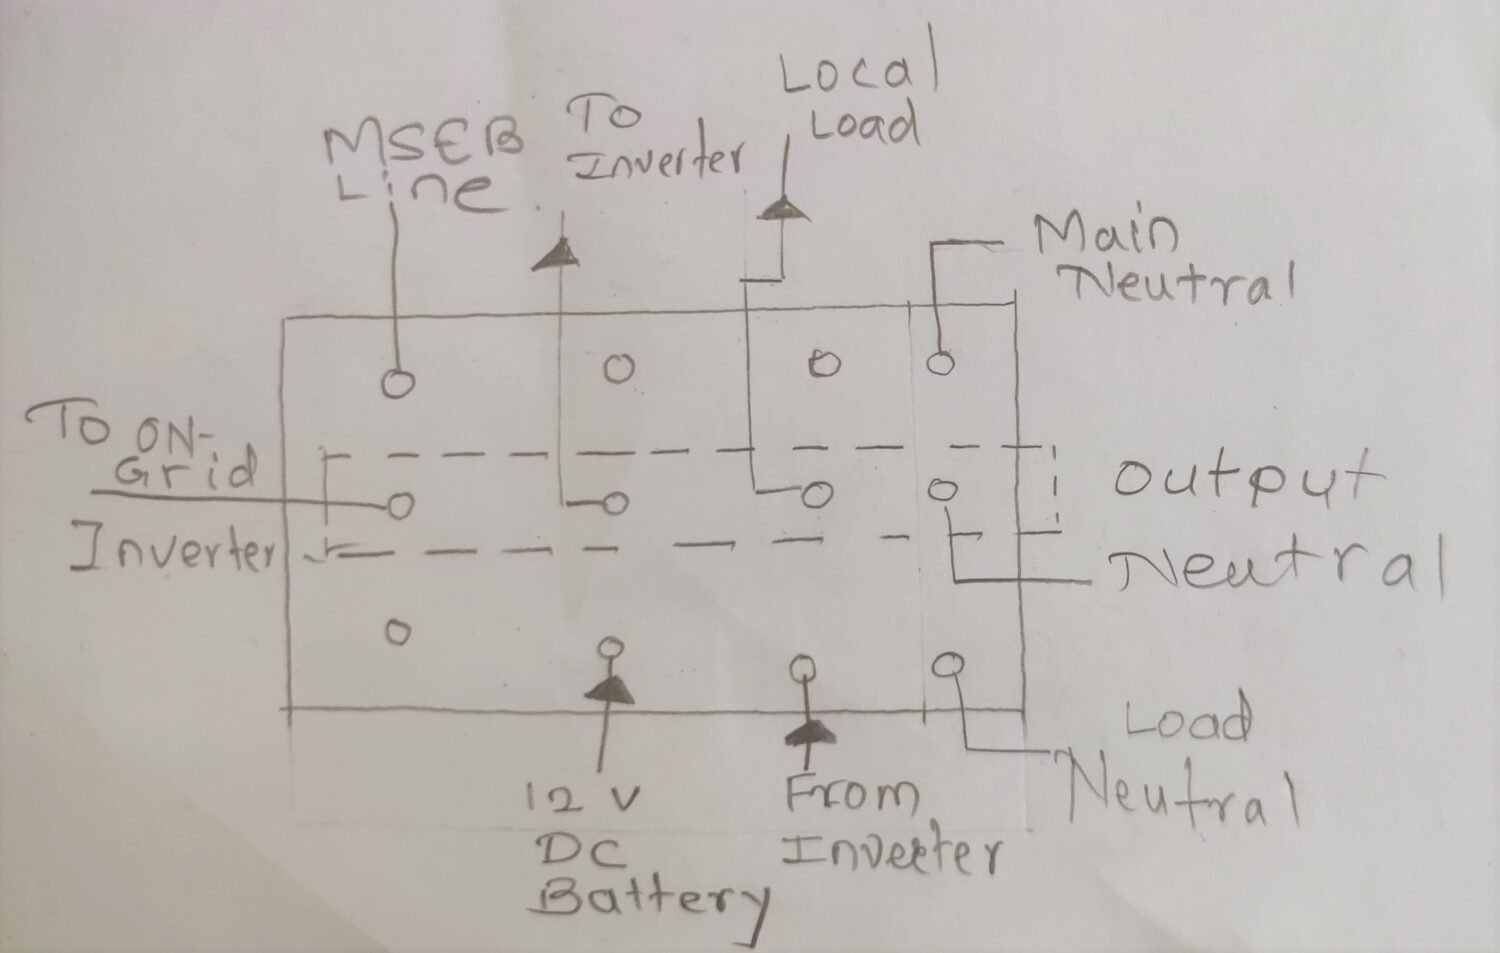 MSEB
Line
To
Inverter
Local
Load
Main
Neutral
To ON-
Grid
Inverter
Output
Neutral
12 V
DC
Battery
From
Inverter
Load
Neutral